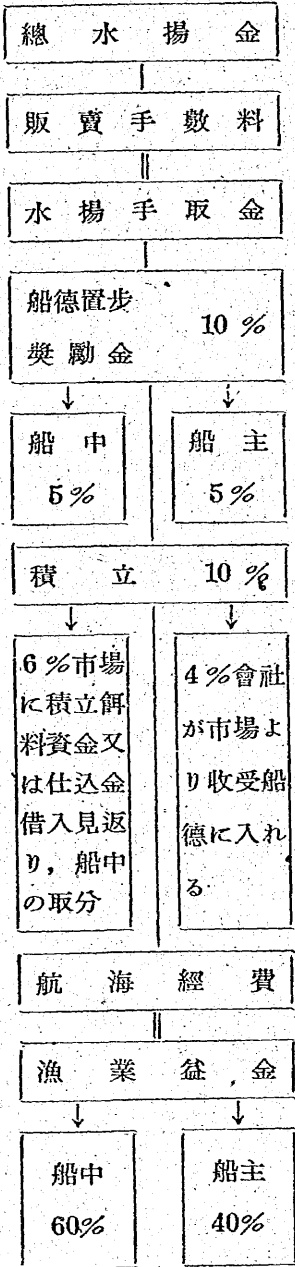 總水揚金
販賣手數料
水揚手取金
船德置步
奬勵金
10%
船中
5%
船主
5%
積立 10%
6%市場
に積立餌
料資金又
は仕込金
借入見返
り，船中
の取分
4%會社
が市場よ
り收受船
德に入れ
る
航海經費
漁業益金
船中
60%
船主
40%